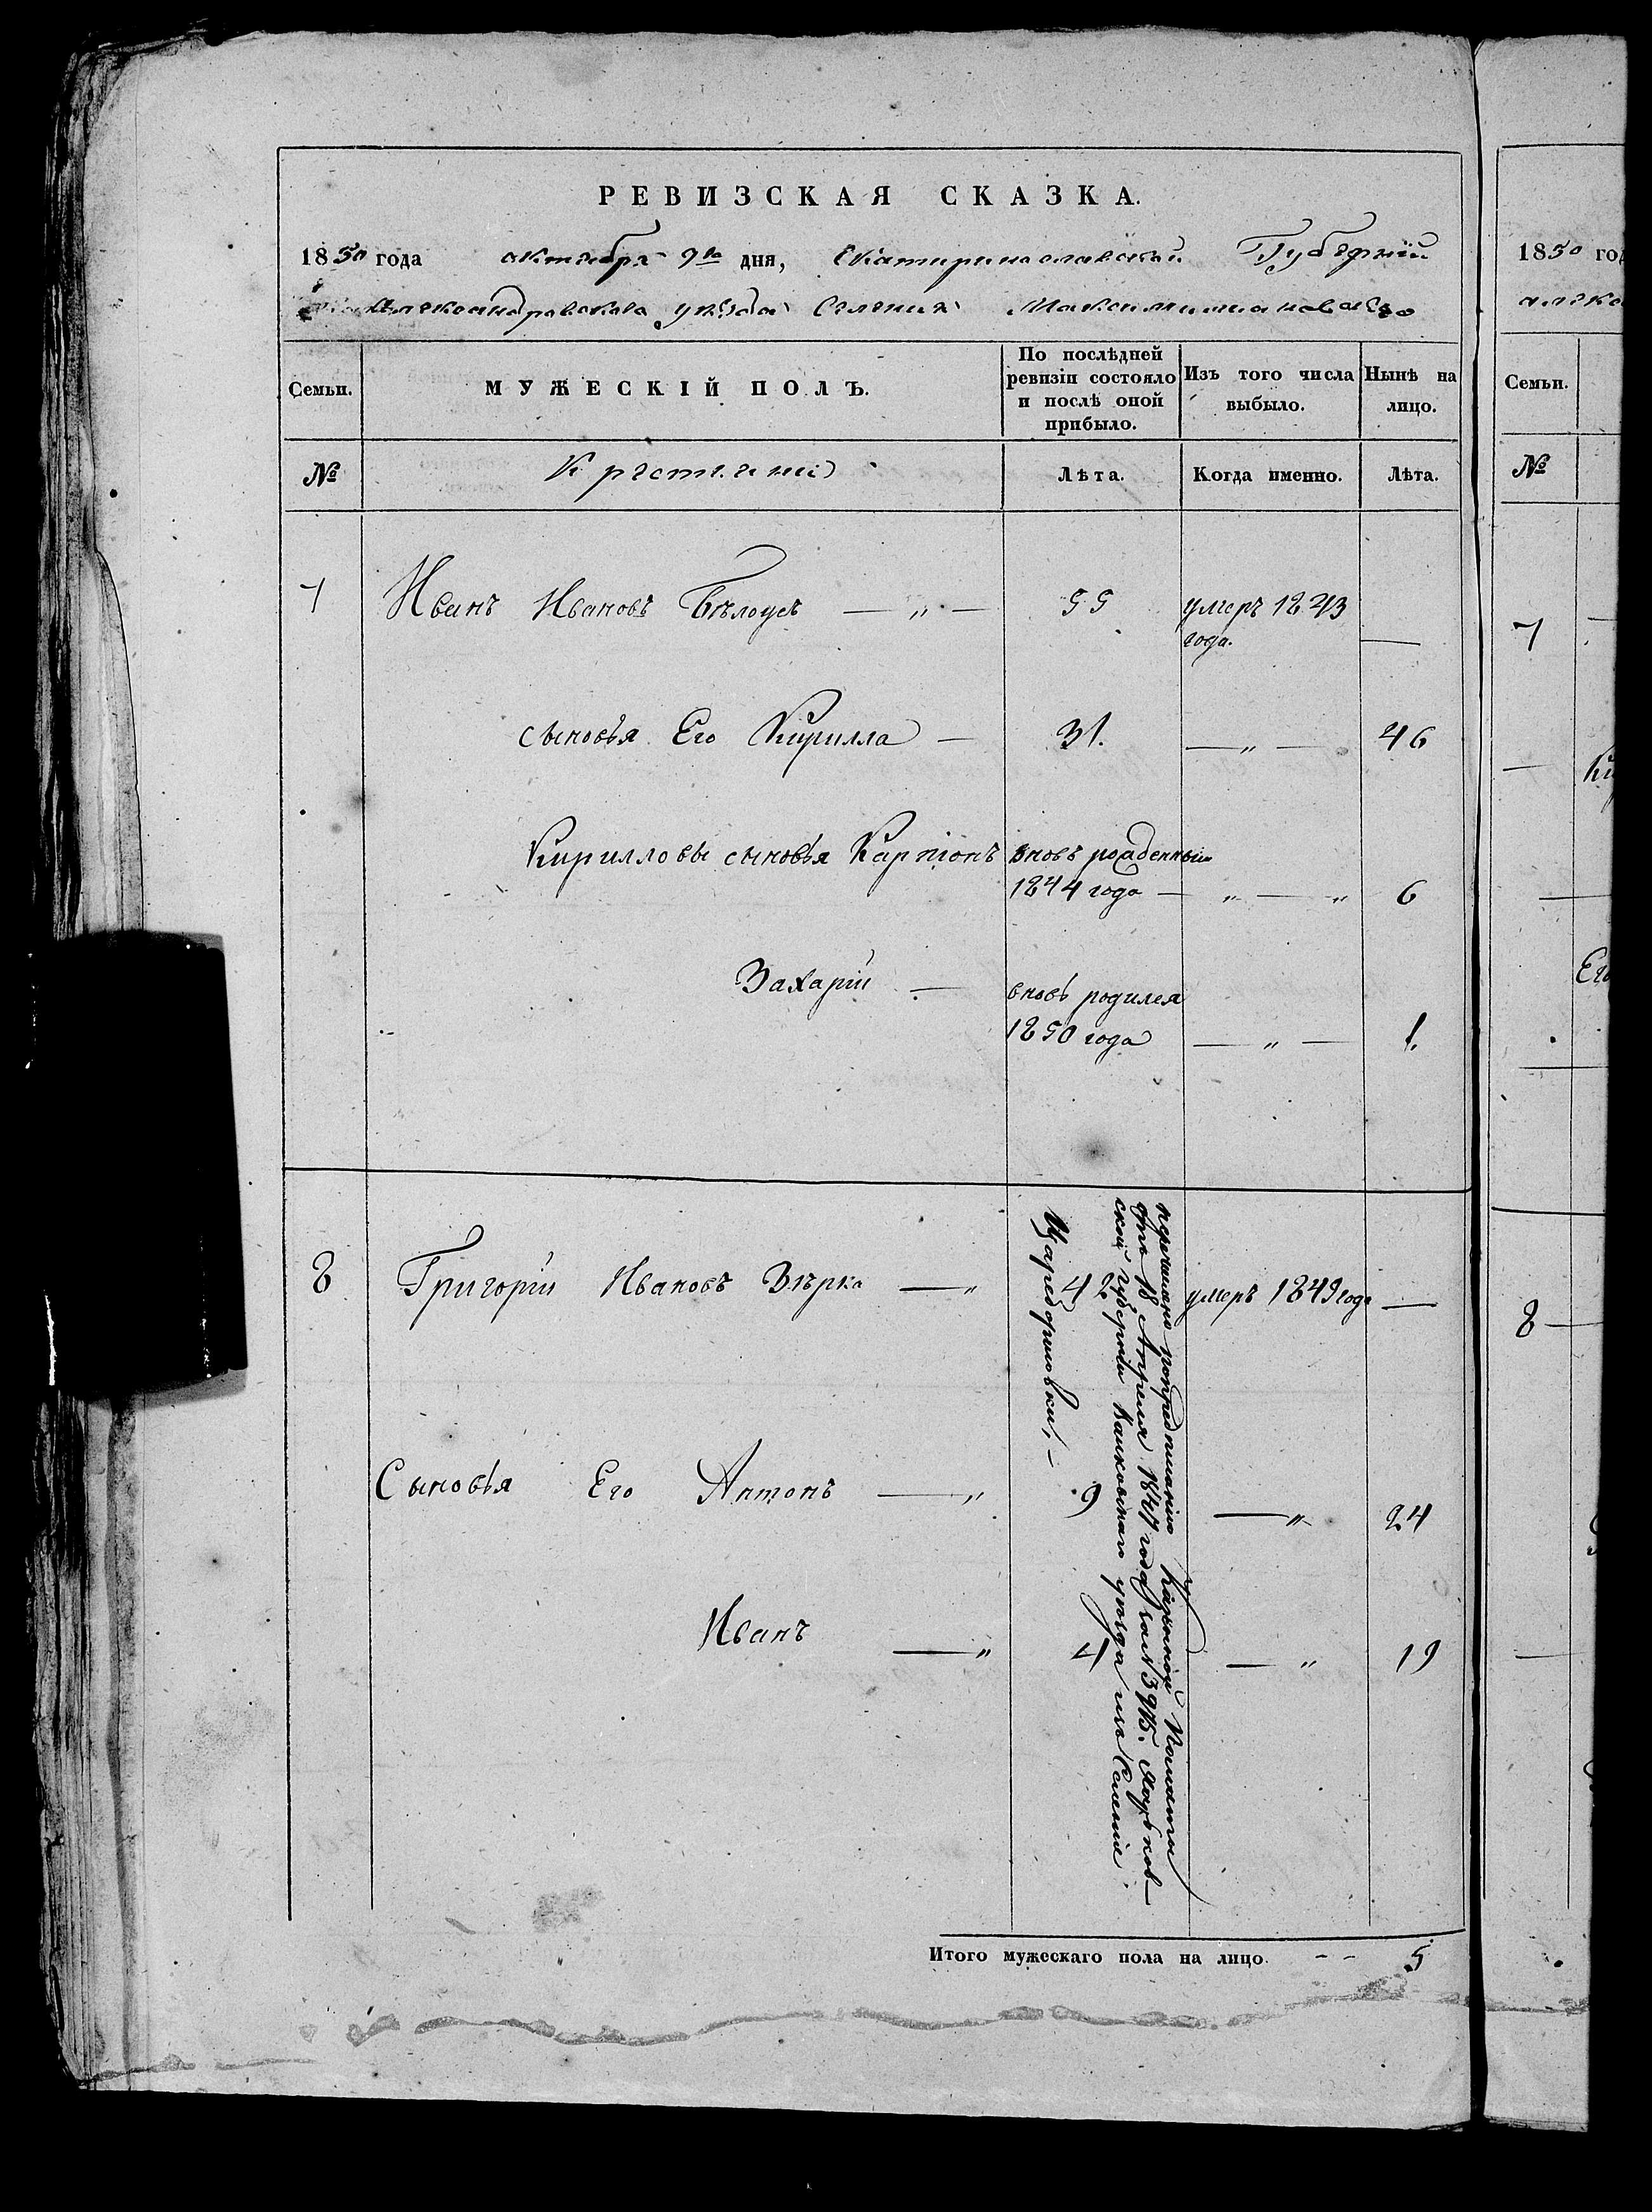 РЕВИЗСКАЯ СКАЗКА.
1850 года октября 9го дня, Екатеринославской Губернiи
Александровскаго уѣзда Селенiя Максимилiановскаго
Семьи.
МУЖЕСКІЙ ПОЛЪ.
По послѣдней ревизіи состояло и послѣ оной прибыло.
Изъ того числа выбыло.
Нынѣ на лицо.
№
Крестьяне
Лѣта.
Когда именно.
Лѣта.
7 Иванъ Ивановъ Бѣлоусъ — „ — 55 умеръ 1843 года. —
сыновья Его Кирилла — 31. — „ — 46
Кирилловы сыновья Карпiонъ вновь рожденный
1844 года — „ — „ 6
Захарiй — вновь родился
1850 года — „ — 1.
8 Григорiй Ивановъ Звѣрка — „ 42 умеръ 1849 года —
Сыновья Его Антонъ — „ 9 — „ 24
Иванъ — „ 4 — „ 19
перечислено попредписанiю Казенной Палаты
отъ 18 Апреля 1847 года за № 3975. Харьков-
ской губернiи уѣзда изъ Селенiя
Цареборисовки, —
Итого мужескаго пола на лицо. - - 5
1850 год
Семьи.
№
7
Ки
Его
8